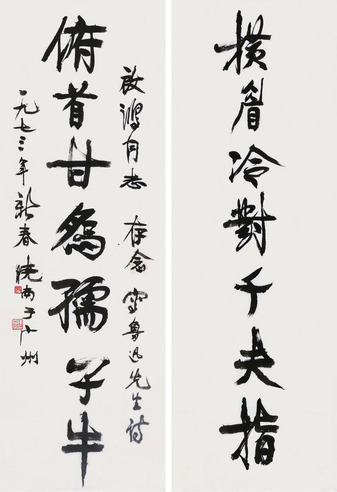 横眉冷對千夫指
啟鴻同志 存念 寫魯迅先生詩
俯首甘為孺子牛
一九七三年新春 南于 州